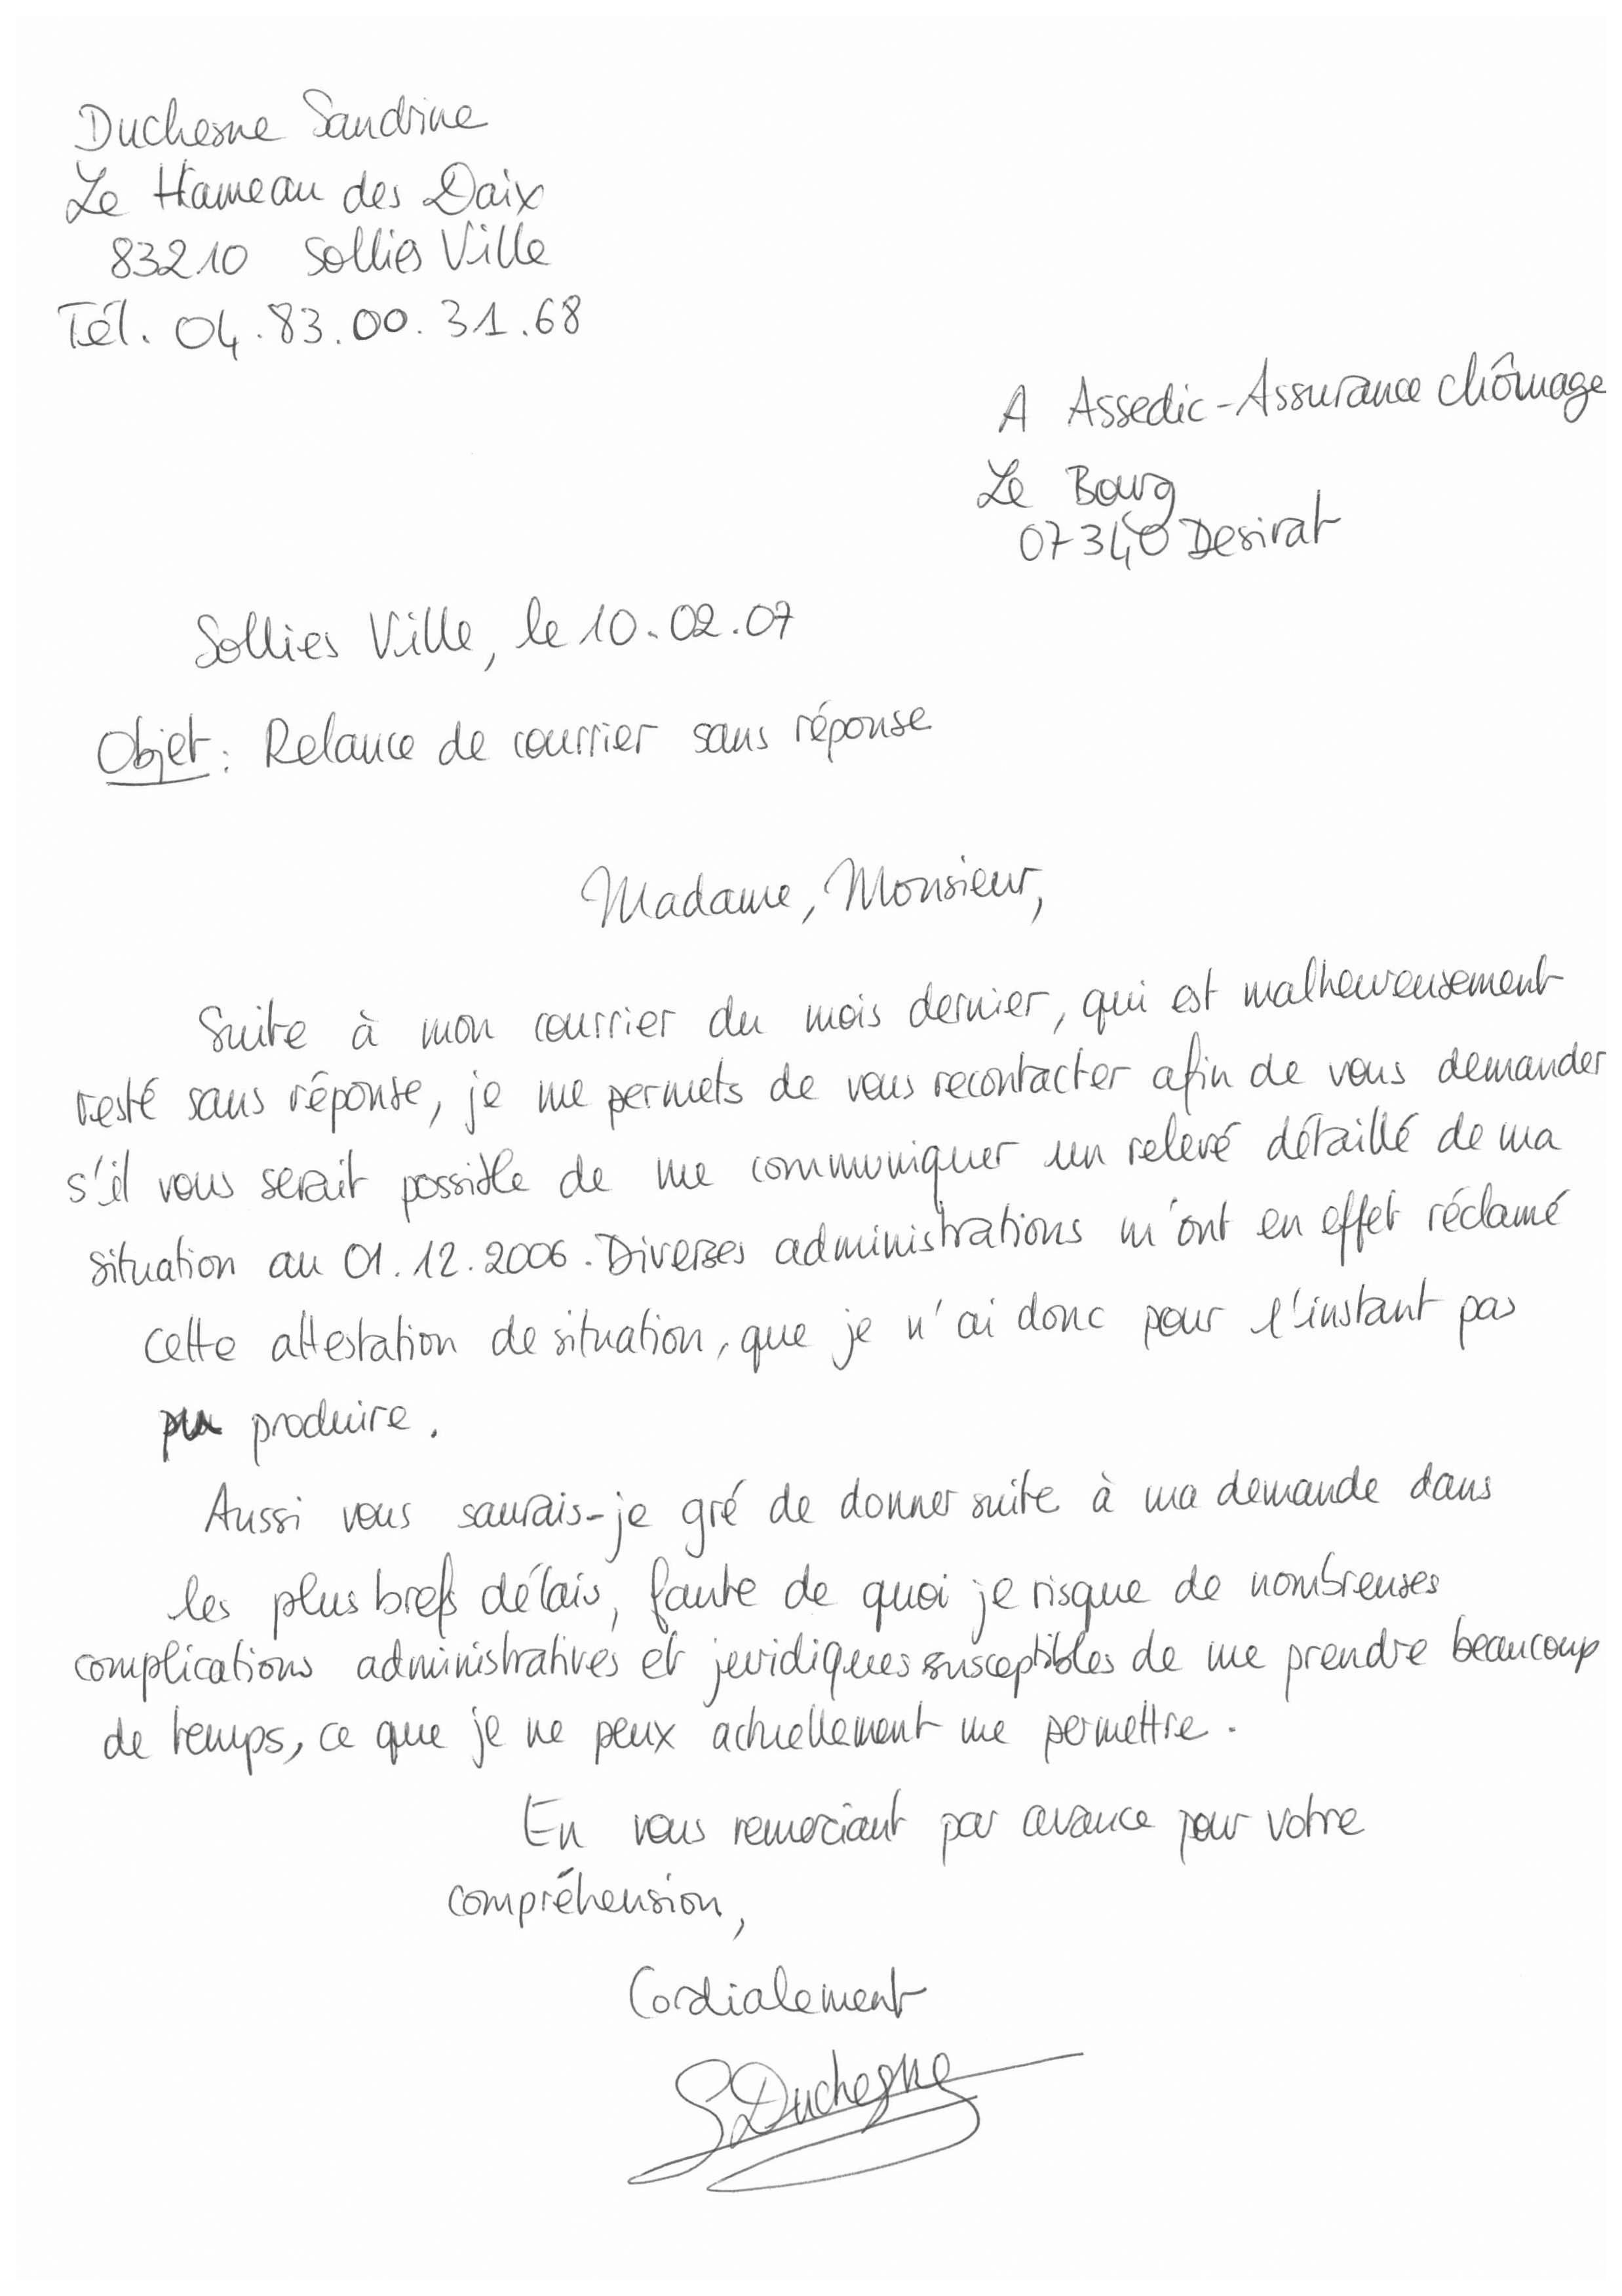 Duchesne Sandrine
Le Hameau des Daix
83210 Sollies Ville
Tél. 04.83.00.31.68
A Assedic-Assurance chômage
Le Bourg
07340 Desirat
Sollies Ville, le 10.02.07
Objet : Relance de courrier sans réponse
Madame, Monsieur,
Suite à mon courrier du mois dernier, qui est malheureusement
resté sans réponse, je me permets de vous recontacter afin de vous demander
s'il vous serait possible de me communiquer un relevé détaillé de ma
situation au 01.12.2006. Diverses administrations m'ont en effet réclamé
cette attestation de situation, que je n'ai donc pour l'instant pas
pu produire.
Aussi vous saurais-je gré de donner suite à ma demande dans
les plus brefs délais, faute de quoi je risque de nombreuses
complications administratives et juridiques susceptibles de me prendre beaucoup
de temps, ce que je ne peux actuellement me permettre.
En vous remerciant par avance pour votre
compréhension,
Cordialement
S.Duchesne